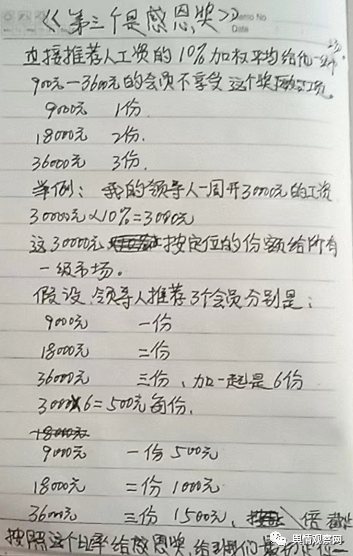 《第三个是感恩奖》
Memo No
Date
直接推荐人工资的10%加权平均给他一
900元—3600元的会员不享受这个奖
9000元 1份.
18000元 2份.
36000元 3份.
举例：我的领导人一周开30000元的工资
30000元×10%=3000元
这30000元按定位的份额给所有
一级市场。
假设领导人推荐3个会员分别是：
9000元 一份
18000元 二份
36000元 三份，加一起是6份
3000÷6=500元每份.
18000元
9000元 一份500元
18000元 二份1000元
36000元 三份1500元, 倍
按照这个比率给感恩奖,给到我们
舆情观察网